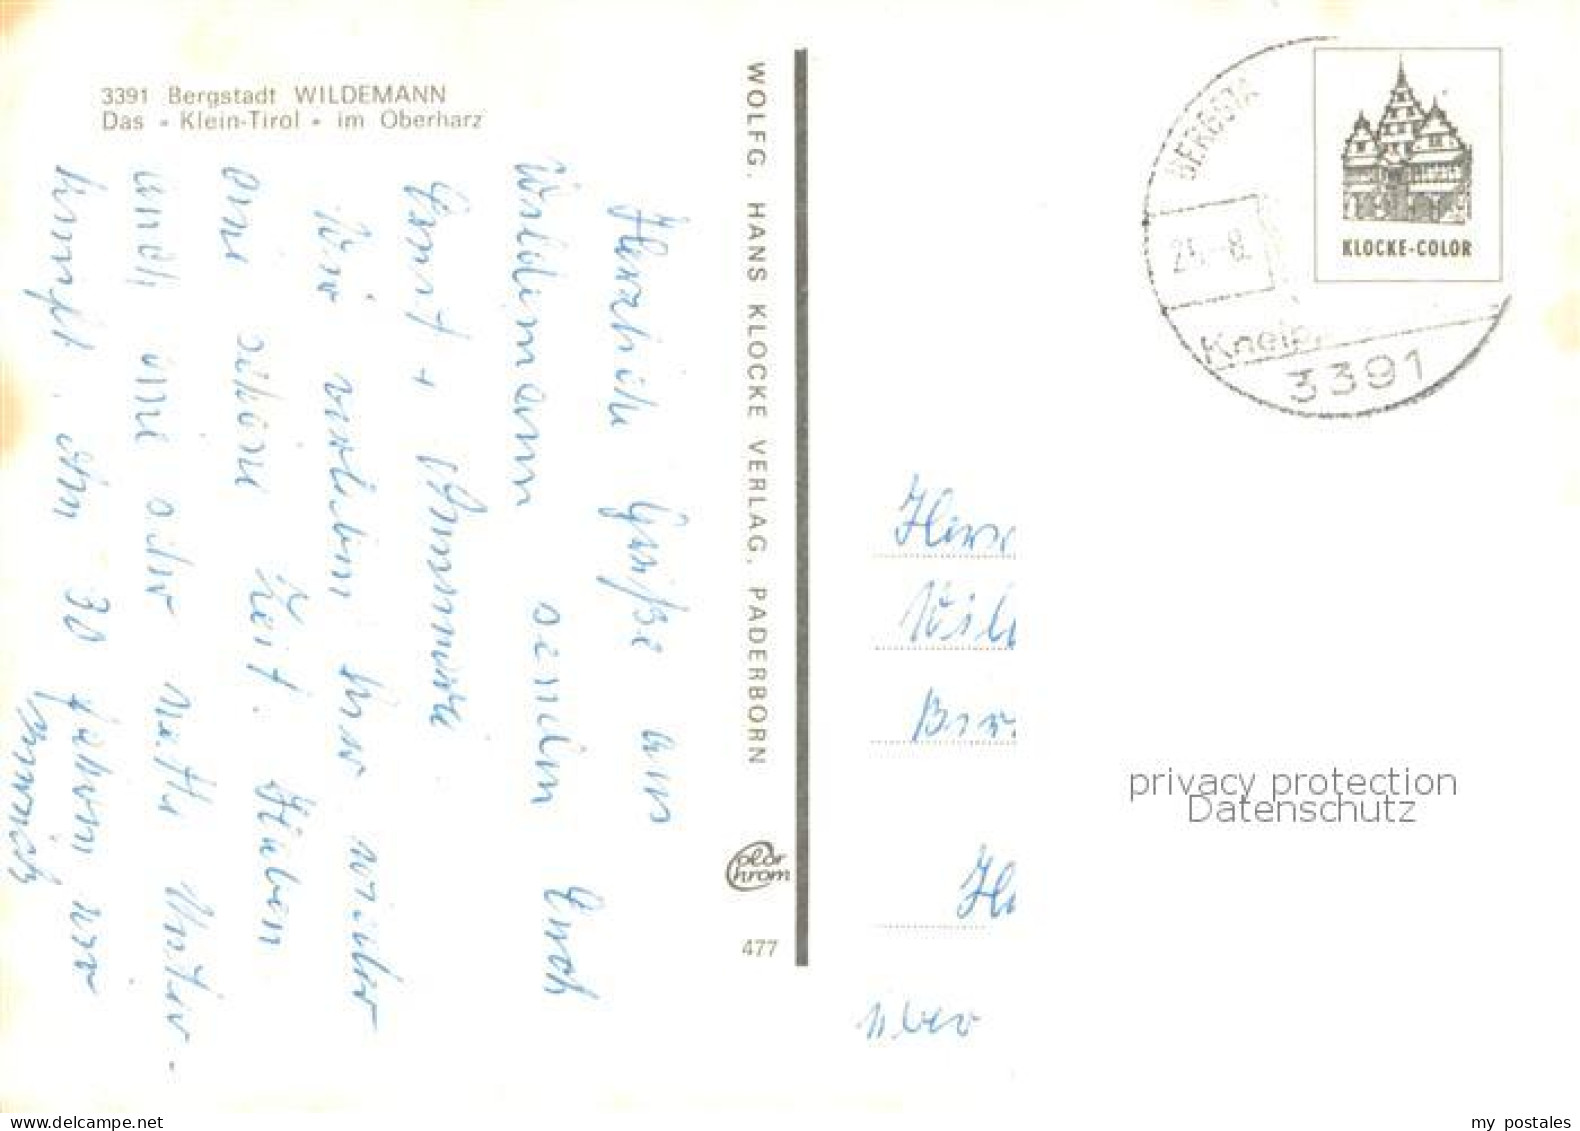 3391 Bergstadt WILDEMANN
Das „Klein-Tirol“ im Oberharz
Herzliche Grüße aus
Wildemann senden Euch
Ernst + Annemarie
Wir verleben hier wieder
eine schöne Zeit. Haben
auch eine sehr nette Unter-
kunft.
30 Jahren
WOLFG. HANS KLOCKE VERLAG, PADERBORN
Color
Chrom
477
BERGSTA
Kneip
3391
KLOCKE-COLOR
Herr
Wil
über
privacy protection
Datenschutz
www.delcampe.net
my_postales